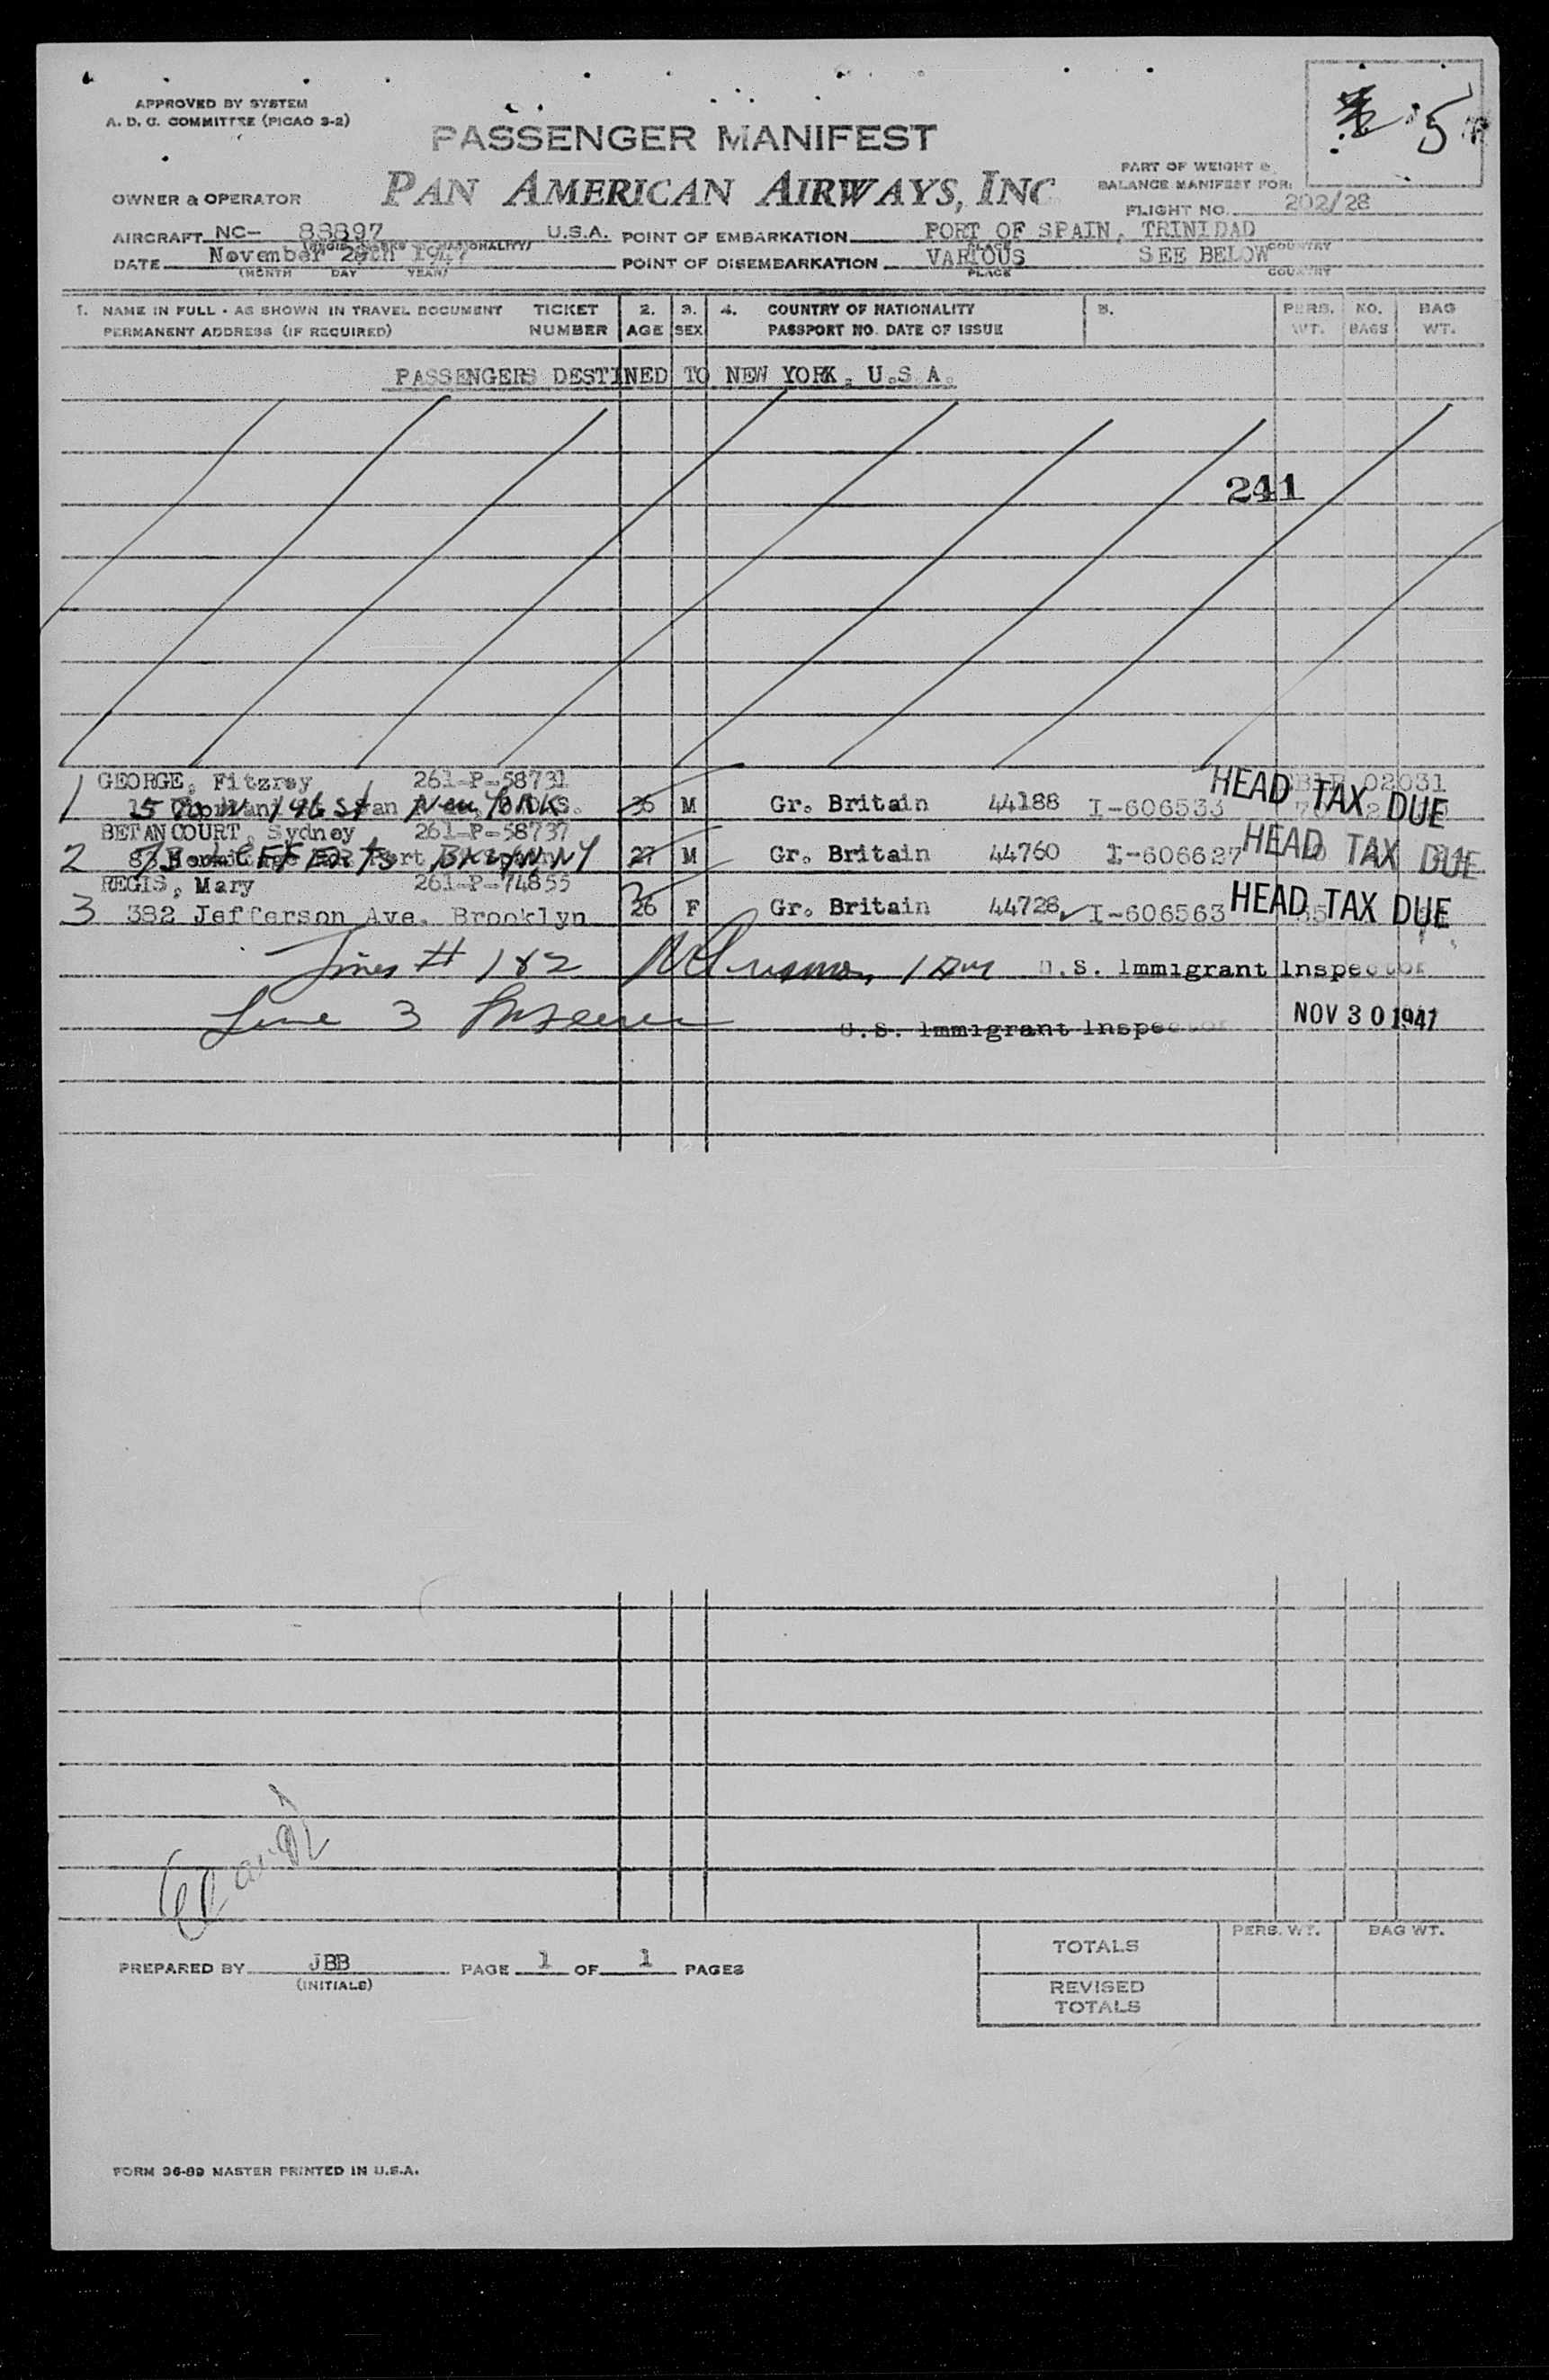 APPROVED BY SYSTEM
A. D. C. COMMITTEE (PICAO S-2)
PASSENGER MANIFEST
PART OF WEIGHT &
BALANCE MANIFEST FOR:
OWNER & OPERATOR PAN AMERICAN AIRWAYS, INC
FLIGHT NO. 202/28
AIRCRAFT NC- 88897 U.S.A. POINT OF EMBARKATION PORT OF SPAIN, TRINIDAD
PLACE COUNTRY
DATE November 1947 POINT OF DISEMBARKATION VARIOUS SEE BELOW
(MONTH DAY YEAR) PLACE COUNTRY
1. NAME IN FULL - AS SHOWN IN TRAVEL DOCUMENT TICKET 2. 3. 4. COUNTRY OF NATIONALITY 5. PERS. NO. BAG
PERMANENT ADDRESS (IF REQUIRED) NUMBER AGE SEX PASSPORT NO. DATE OF ISSUE WT. BAGS WT.
PASSENGERS DESTINED TO NEW YORK, U.S.A.
241
GEORGE, Fitzroy 261-P-58731 02031
1 146 St New York M Gr. Britain 44188 I-606533 HEAD TAX DUE
BETANCOURT, Sydney 261-P-58737
2 27 M Gr. Britain 44760 I-606627 HEAD TAX DUE
REGIS, Mary 261-P-74855
3 382 Jefferson Ave. Brooklyn 26 F Gr. Britain 44728 I-606563 HEAD TAX DUE
Lines # 1&2 U.S. Immigrant Inspector
Line 3 U.S. Immigrant Inspector NOV 30 1947
TOTALS PERS. WT. BAG WT.
PREPARED BY JBB PAGE 1 OF 1 PAGES
(INITIALS)
REVISED
TOTALS
FORM 36-89 MASTER PRINTED IN U.S.A.